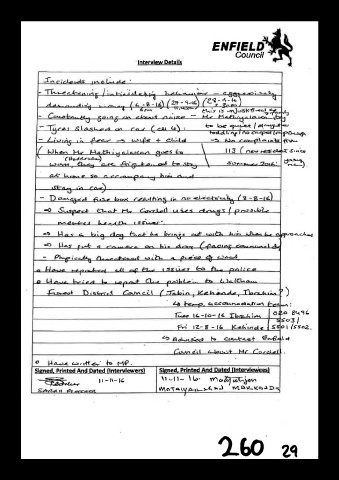 ENFIELD
Council
Interview Details
Incidents include:
- Threatening / intimidating behaviour - aggressively
demanding money (6-8-16) (29-9-16) (28-9-16)
- Constantly going on about noise - Mr Mathiyalagan
to be quiet /
- Tyres slashed on car (all 4).
- Living in fear → wife + child → No complaints from
(When Mr Mathiyalagan goes to 113 (new resident since
work, they are frightened to stay summer 2016
at home so accompany him and
stay in car)
- Damaged fuse box resulting in no electricity (3-8-16)
⇒ Suspect that Mr Cordell uses drugs / possible
mental health issues.
⇒ Has a big dog that he brings out with him when he approaches
⇒ Has put a camera on his door (facing communal
- Physically threatened with a piece of wood
• Have reported all of the issues to the police
• Have tried to report the problem to Waltham
Forest District Council (Jabin, Kehinde, Ibrahim?)
↳ temp. accommodation team:
Tues 16-10-16 Ibrahim 020 8496
5503/
Fri 12-8-16 Kehinde 5501/5502.
↳ Advised to contact Enfield
Council about Mr Cordell.
• Have written to MP.
Signed, Printed And Dated (Interviewers) Signed, Printed And Dated (Interviewees)
11-11-16 11-11-16
SARAH FLETCHER
260 29